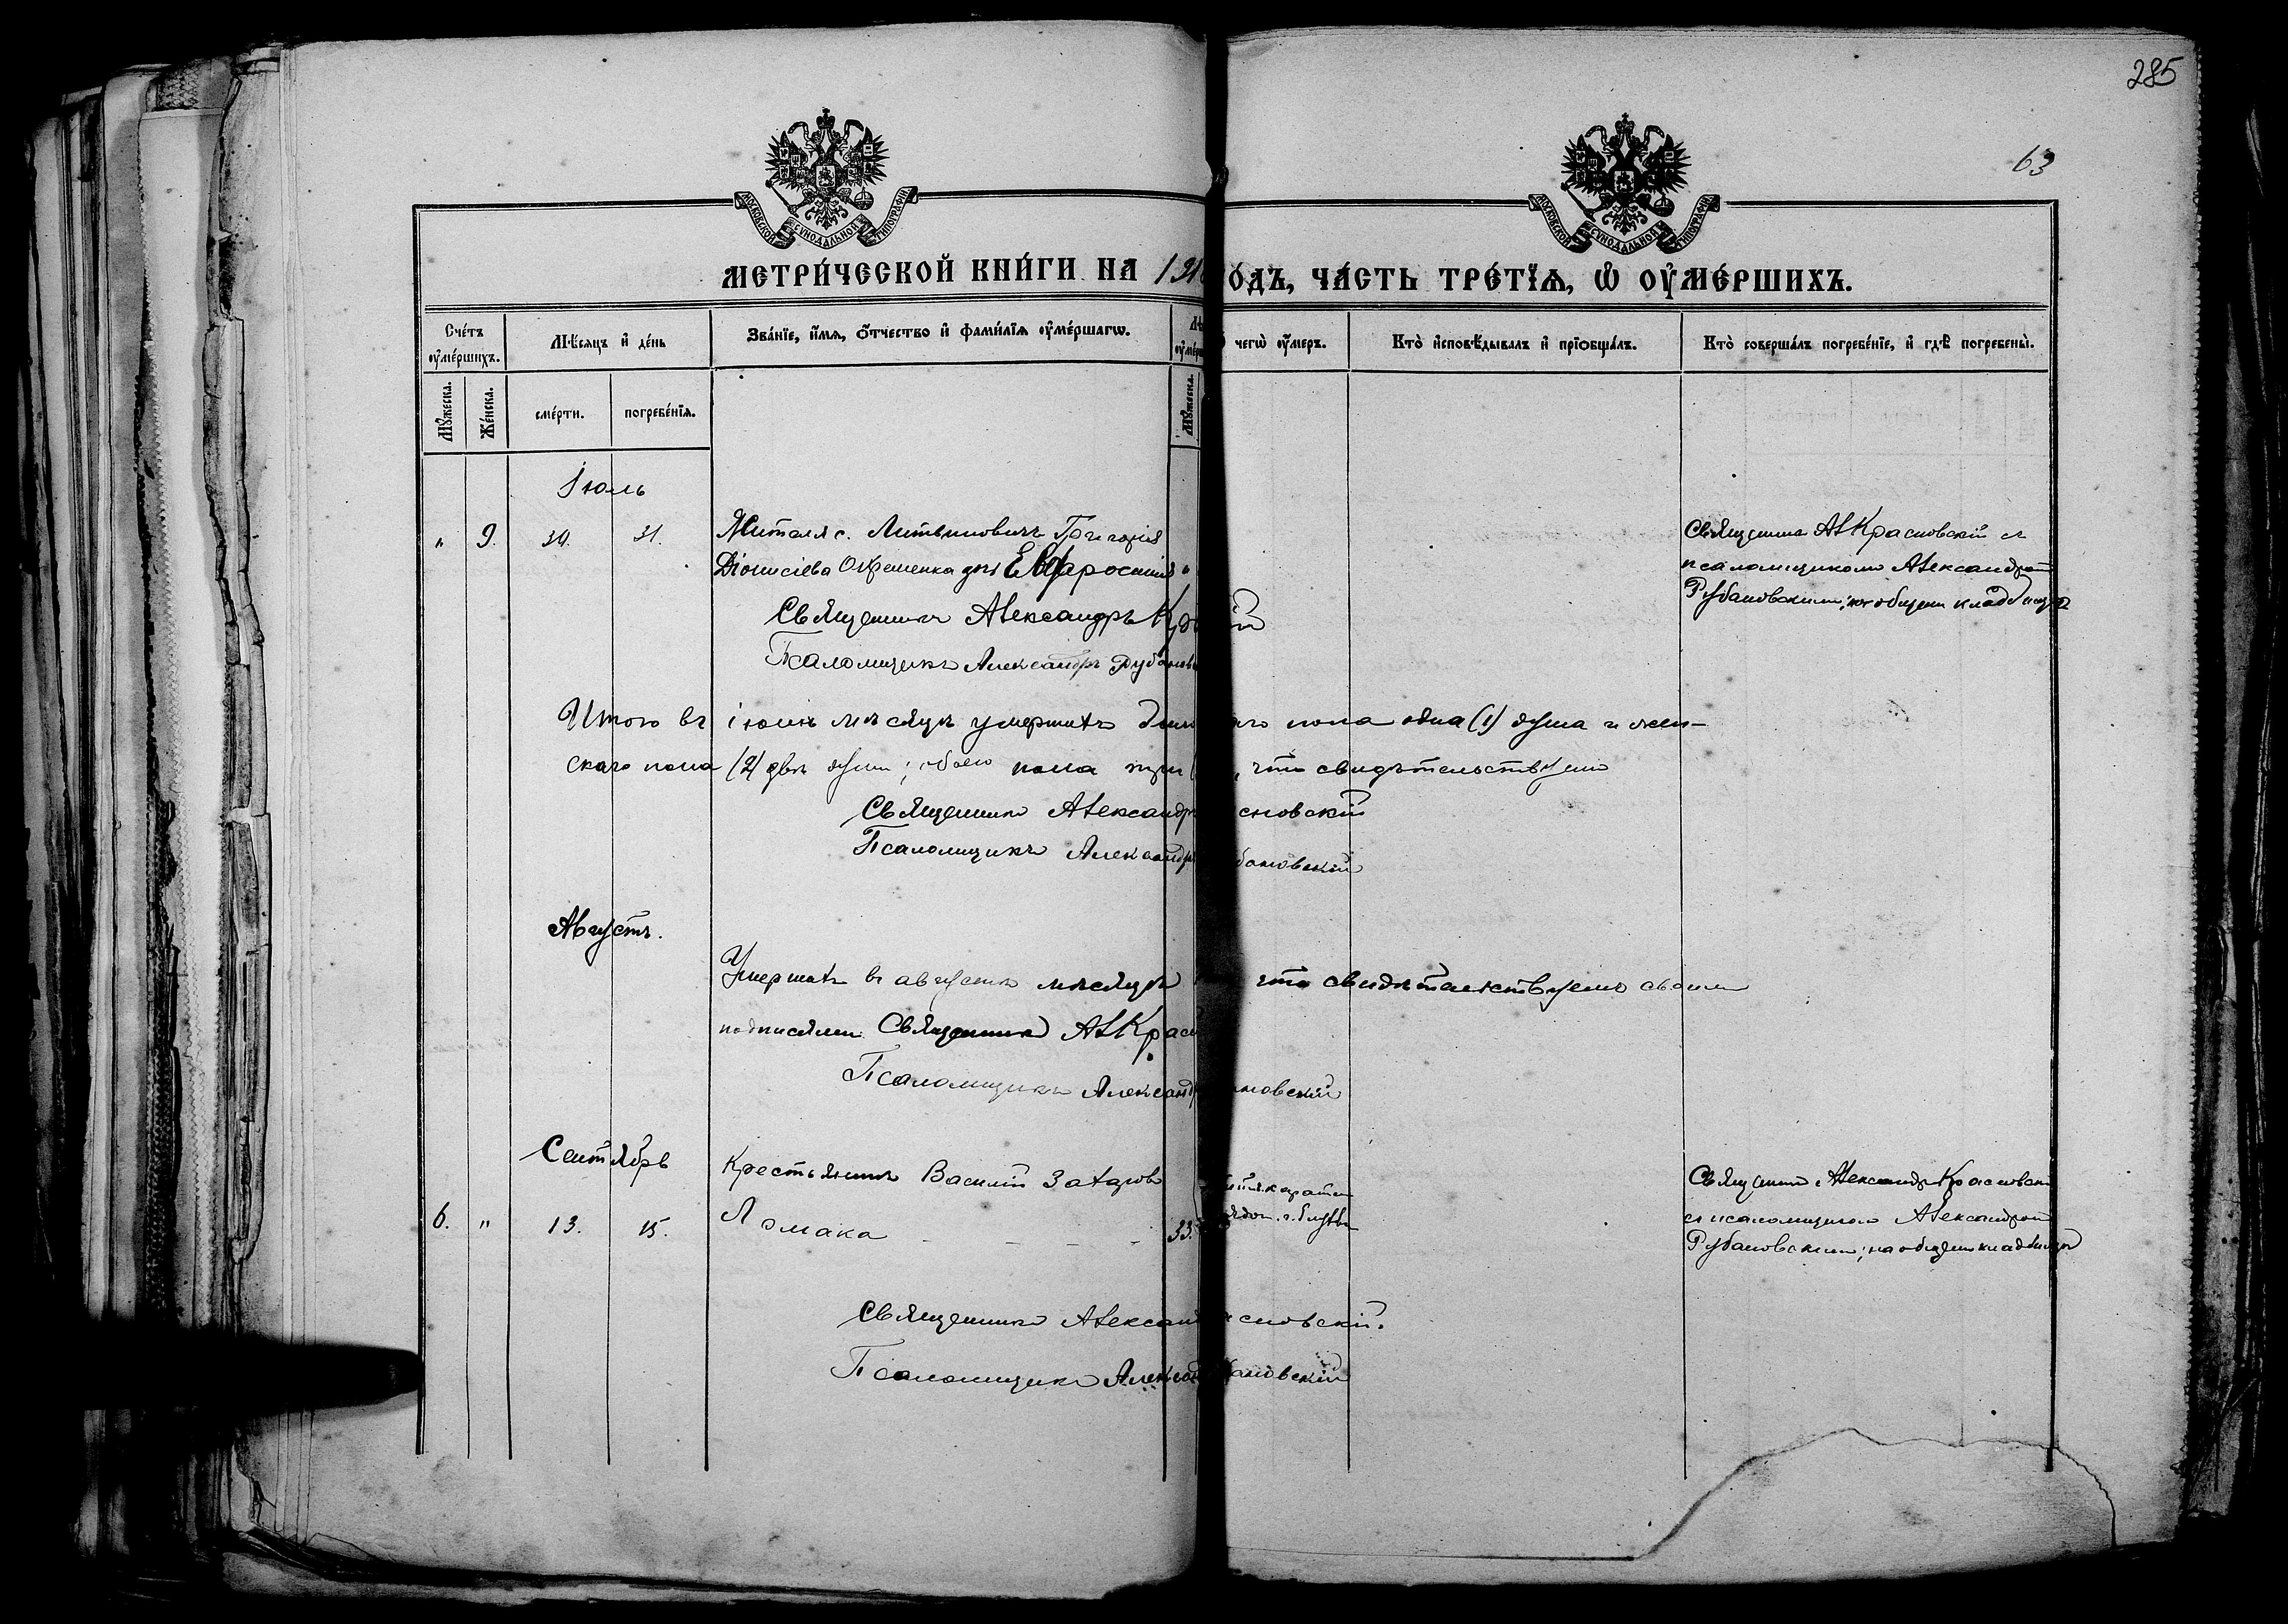 285
63
МОСКОВСКОЙ СѴНОДАЛЬНОЙ ТИПОГРАФІИ
МОСКОВСКОЙ СѴНОДАЛЬНОЙ ТИПОГРАФІИ
МЕТРИ́ЧЕСКОЙ КНИ́ГИ НА 191
О́ДЪ, ЧА́СТЬ ТРЕ́ТЇѦ, Ѽ ОУ҆МЕ́РШИХЪ.
Сче́тъ оу҆ме́ршихъ.
Мѣ́сяцъ и҆ де́нь
Зва́нїе, и҆́мѧ, ѻ҆́тчество и҆ фами́лїѧ оу҆ме́ршагѡ.
чегѡ̀ оу҆́меръ.
Кто̀ и҆сповѣ́дывалъ и҆ прїѻбща́лъ.
Кто̀ соверша́лъ погребе́нїе, и҆ гдѣ̀ погребены̀.
Мꙋ́жеска.
Же́нска.
сме́рти.
погребе́нїѧ.
Мꙋ́жеска.
Іюль
" 9. 30. 31. Жителя с. Литвиновичъ Григорія
Діонисіева дочь Евфросинія "
Священникъ Александръ
Псаломщикъ Александръ Рубановс
Священникъ Ал Красновскій съ
псаломщикомъ Александромъ
Рубановскимъ; на общемъ кладбищѣ
Итого въ іюлѣ мѣсяцѣ умершихъ пола одна (1) душа и жен-
скаго пола (2) двѣ души; обоего пола три , что свидѣтельствуемъ
Священникъ Александръ сновскій
Псаломщикъ Александръ бановскій
Августъ.
Умершихъ въ августѣ мѣсяцѣ что свидѣтельствуемъ своими
подписями Священникъ Ал Красн
Псаломщикъ Александръ ановскій
Сентябрь
Крестьянинъ Василій Захаровъ
6. " 13. 15. Ломака - - - - 33.
Священникъ Александръ Красновскій
съ псаломщикомъ Александромъ
Рубановскимъ; на общемъ кладбищѣ
Священникъ Александ сновскій.
Псаломщикъ Александ бановскій